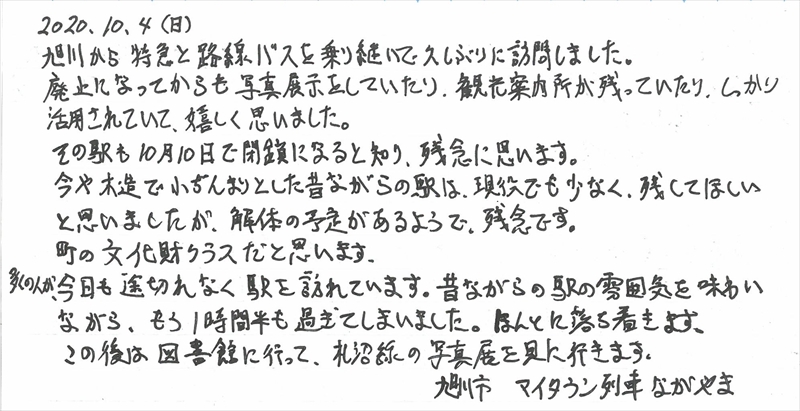 2020.10.4(日)
旭川から特急と路線バスを乗り継いで久しぶりに訪問しました。
廃止になってからも写真展示をしていたり、観光案内所が残っていたり、しっかり
活用されていて、嬉しく思いました。
その駅も10月10日で閉鎖になると知り、残念に思います。
今や木造で小ぢんまりとした昔ながらの駅は、現役でも少なく、残してほしい
と思いましたが、解体の予定があるようで、残念です。
町の文化財クラスだと思います。
多くの人が、今日も途切れなく駅を訪れています。昔ながらの駅の雰囲気を味わい
ながら、もう1時間半も過ぎてしまいました。ほんとに落ち着きます。
この後は図書館に行って、札沼線の写真展を見に行きます。
旭川市 マイタウン列車ながやま